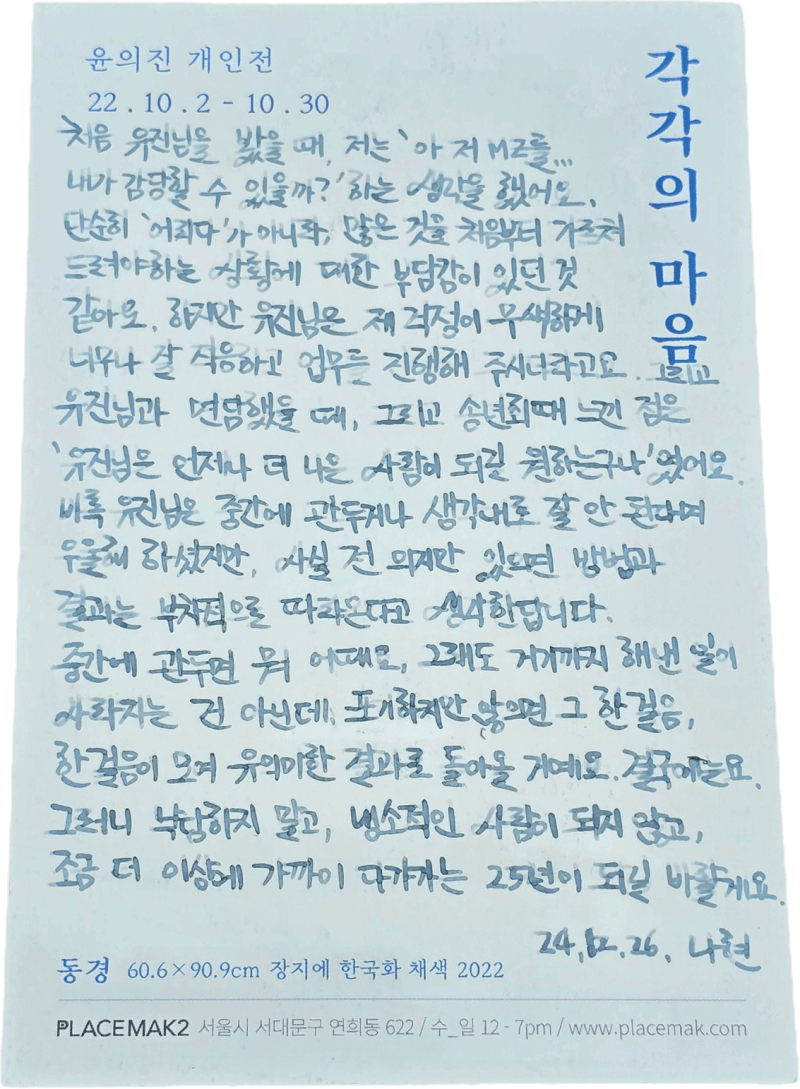 윤의진 개인전
22.10.2 - 10.30
각각의 마음
처음 유진님을 봤을 때, 저는 '아 저 MZ를...
내가 감당할 수 있을까?' 하는 생각을 했어요.
단순히 '어리다'가 아니라, 많은 것을 처음부터 가르쳐
드려야하는 상황에 대한 부담감이 있던 것
같아요. 하지만 유진님은 제 걱정이 무색하게
너무나 잘 적응하고 업무를 진행해 주시더라고요. 그리고
유진님과 면담했을 때, 그리고 송년회때 느낀 점은
'유진님은 언제나 더 나은 사람이 되길 원하는구나'였어요.
비록 유진님은 중간에 관두거나 생각대로 잘 안 된다며
우울해 하셨지만, 사실 전 의지만 있으면 방법과
결과는 부차적으로 따라온다고 생각한답니다.
중간에 관두면 뭐 어때요, 그래도 거기까지 해낸 일이
사라지는 건 아닌데. 포기하지만 않으면 그 한 걸음,
한 걸음이 모여 유의미한 결과로 돌아올 거예요. 결국에는요.
그러니 낙담하지 말고, 냉소적인 사람이 되지 않고,
조금 더 이상에 가까이 다가가는 25년이 되길 바랄게요.
24.12.26. 나현
동경 60.6×90.9cm 장지에 한국화 채색 2022
PLACEMAK2 서울시 서대문구 연희동 622 / 수_일 12 - 7pm / www.placemak.com